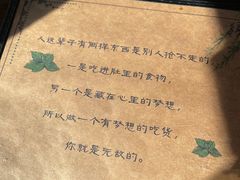 人这辈子有两样东西是别人抢不走的
一是吃进肚里的食物，
另一个是藏在心里的梦想，
所以做一个有梦想的吃货，
你就是无敌的。